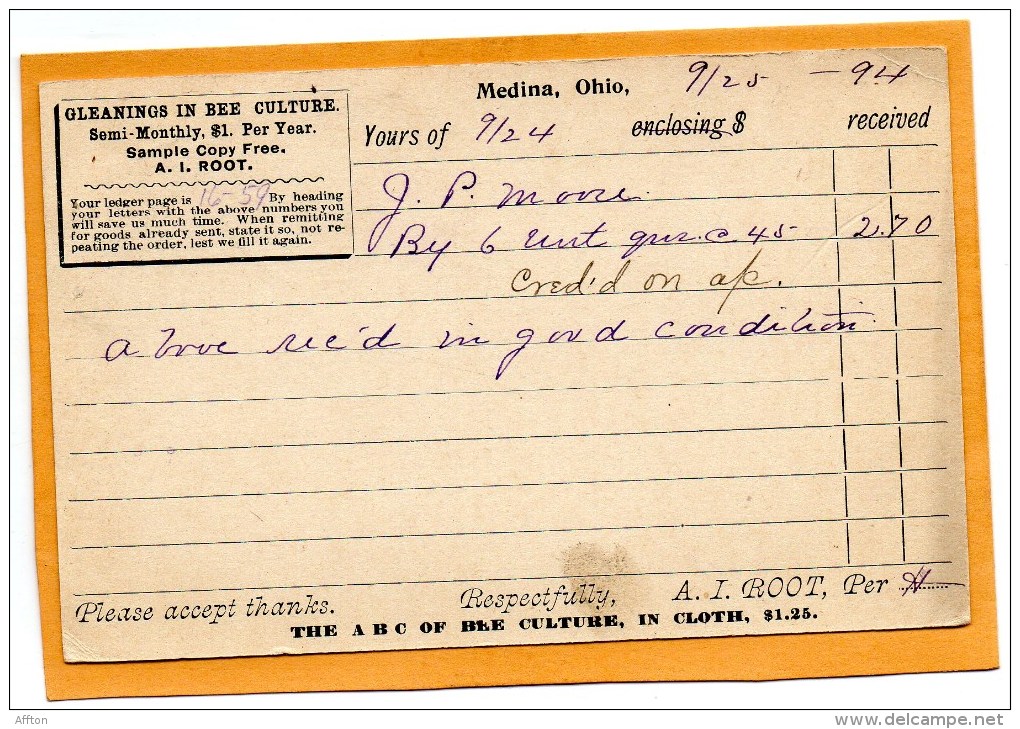 GLEANINGS IN BEE CULTURE.
Semi-Monthly, $1. Per Year.
Sample Copy Free.
A. I. ROOT.
Your ledger page is 16-59 By heading
your letters with the above numbers you
will save us much time. When remitting
for goods already sent, state it so, not re-
peating the order, lest we fill it again.
Medina, Ohio, 9/25 - 94
Yours of 9/24 enclosing $ received
J. P. Moore
By 6 Unt qns. @ 45 2.70
Cred'd on a/c.
above rec'd in good condition
Please accept thanks. Respectfully, A. I. ROOT, Per H
THE A B C OF BEE CULTURE, IN CLOTH, $1.25.
Affton
www.delcampe.net